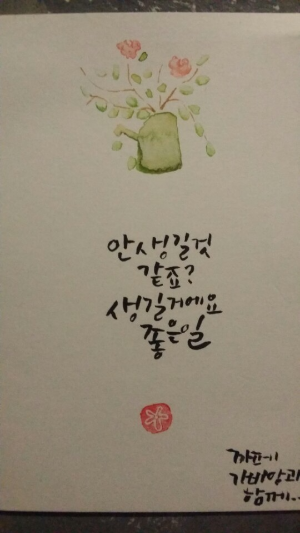 안생길것
같죠?
생길거에요
좋은일
까판에
가비양과
함께..